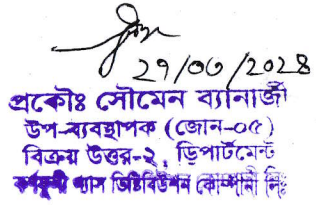 ২৭/০৩/২০২৪
প্রকৌঃ সৌমেন ব্যানার্জী
উপ-ব্যবস্থাপক (জোন-০৫)
বিক্রয় উত্তর-২, ডিপার্টমেন্ট
কর্ণফুলী গ্যাস ডিষ্ট্রিবিউশন কোম্পানী লিঃ